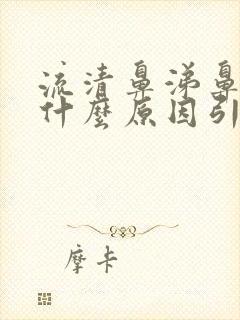 流清鼻涕鼻
什麼原因引
摩卡